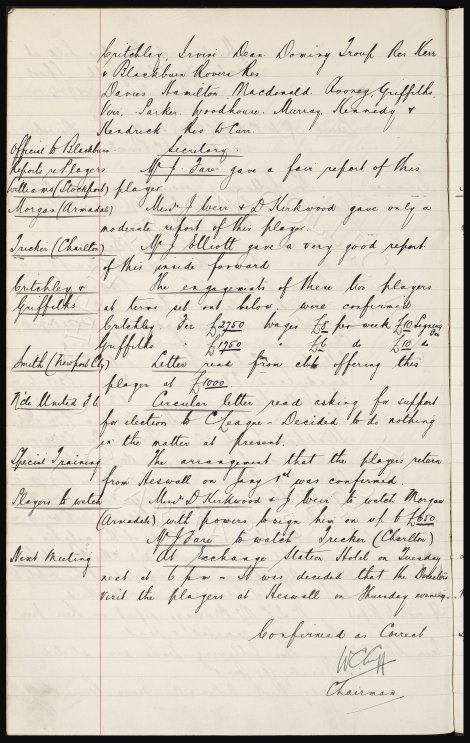 Critchley, Irvine. Dean. Dominy Troup. Res Kerr
& Blackburn Rovers Res
Davies. Hamilton Macdonald. Rooney, Griffiths.
Kerr. Parker. Woodhouse. Murray. Kennedy &
Kendrick Res W Curr.
Official to Blackburn Secretary.
Reports re Players Mr J. Fare gave a fair report of this
Williams (Stockport) player
Morgan (Armadale) Messrs J Weir & D Kirkwood gave only a
moderate report of this player.
Tricker (Charlton) Mr J Elliott gave a very good report
of this inside forward
Critchley & The engagements of these two players
Griffiths at terms set out below, were confirmed
Critchley Fee £2750 Wages £8 per week £10 Signing Fee
Griffiths " £1750 " £6 do £10 do
Smith (Newport Cty) Letter read from club offering this
player at £1000
N'de United F C Circular letter read asking for support
for election to C League - Decided to do nothing
in the matter at present.
Special Training The arrangement that the players return
from Heswall on Jany 1st was confirmed.
Players to watch Messrs D Kirkwood & J Weir to watch Morgan
(Armadale) with powers to sign him on up to £650
Mr J Fare to watch Tricker (Charlton)
Next Meeting At Exchange Station Hotel on Tuesday
next at 6 pm - It was decided that the Directors
visit the players at Heswall on Thursday evening.
Confirmed as Correct
W C Cuff
Chairman